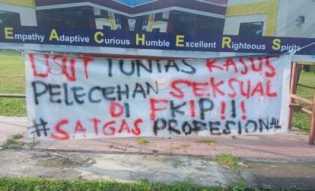 Empathy Adaptive Curious Humble Excellent Righteous Spirits
USUT TUNTAS KASUS
PELECEHAN SEKSUAL
DI FKIP!!!
#SATGAS PROFESIONAL